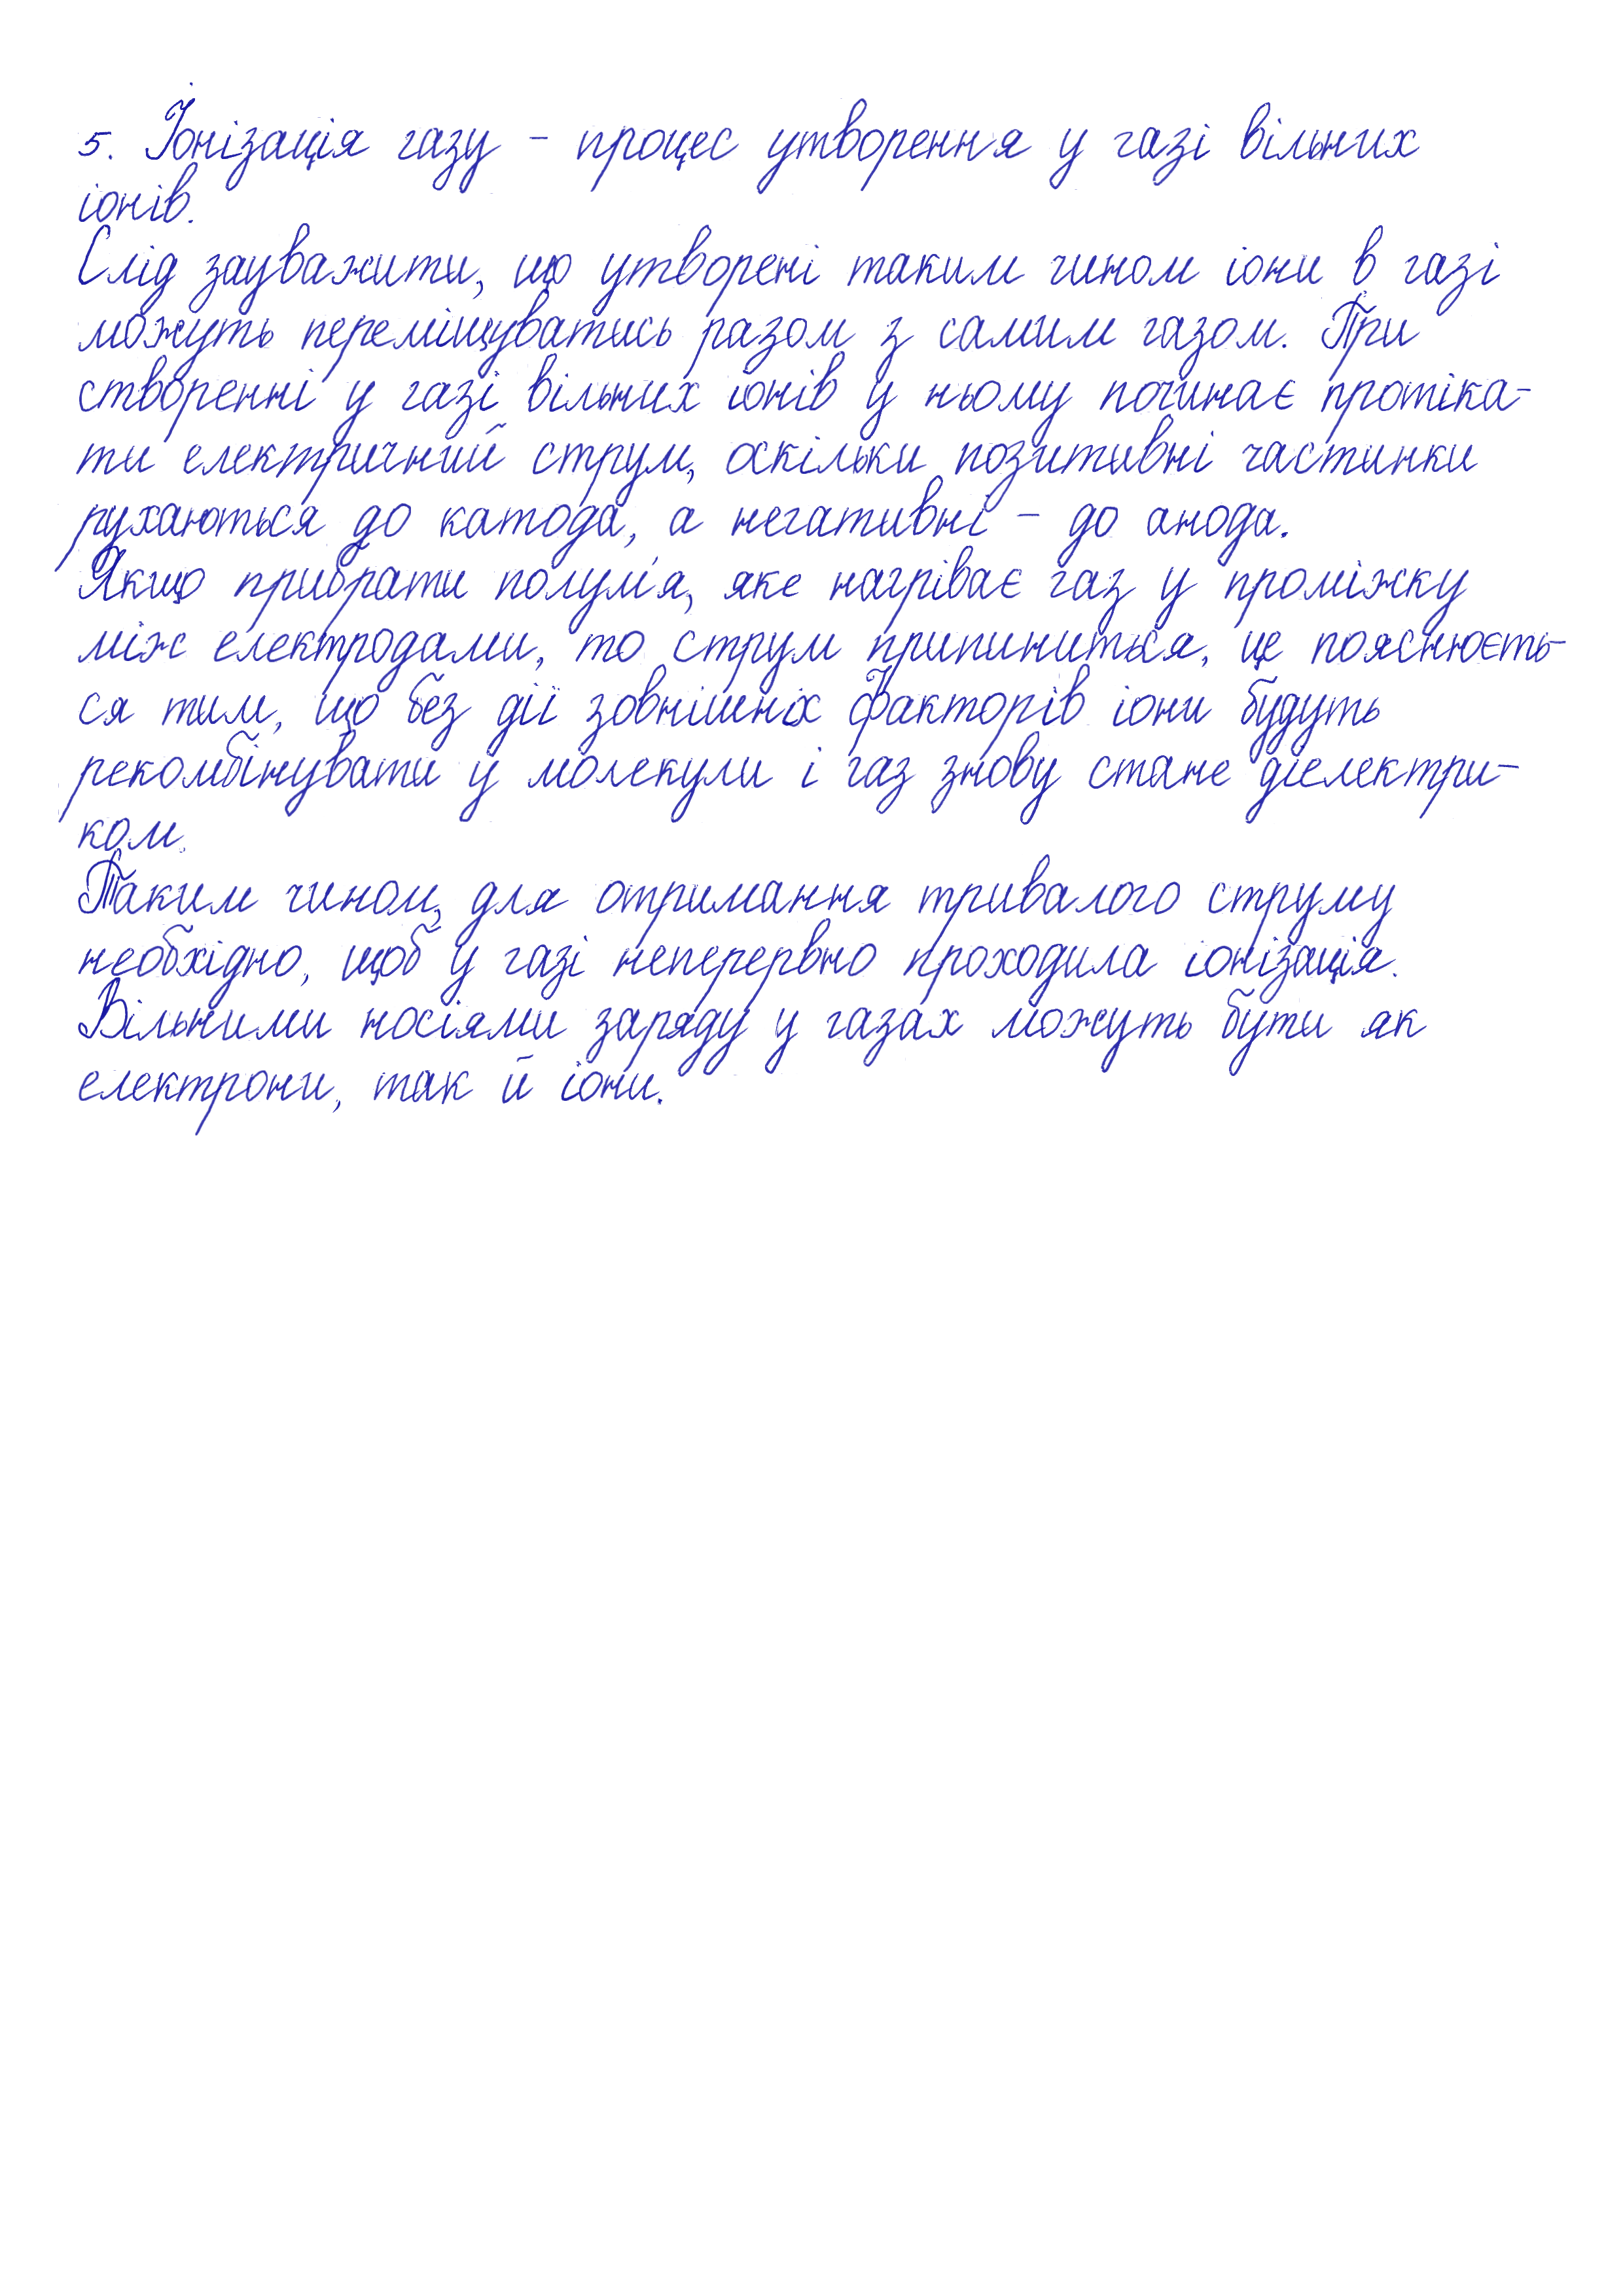 5. Іонізація газу - процес утворення у газі вільних
іонів.
Слід зауважити, що утворені таким чином іони в газі
можуть переміщуватись разом з самим газом. При
створенні у газі вільних іонів у ньому починає протіка-
ти електричний струм, оскільки позитивні частинки
рухаються до катода, а негативні - до анода.
Якщо прибрати полум'я, яке нагріває газ у проміжку
між електродами, то струм припиниться, це пояснюєть-
ся тим, що без дії зовнішніх факторів іони будуть
рекомбінувати у молекули і газ знову стане діелектри-
ком.
Таким чином, для отримання тривалого струму
необхідно, щоб у газі неперервно проходила іонізація.
Вільними носіями заряду у газах можуть бути як
електрони, так й іони.